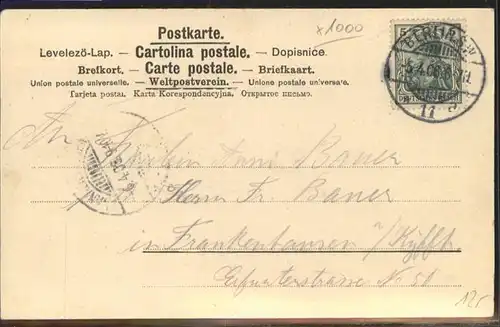 x1000
Postkarte.
Levelező-Lap. — Cartolina postale. — Dopisnice.
Brefkort. — Carte postale. — Briefkaart.
Union postale universelle. — Weltpostverein. — Unione postale universale.
Tarjeta postal. Karta Korespondencyjna. Открытое письмо.
5
BERLIN
An Fräulein Anni Bauer
Herrn Fr. Bauer
in Frankenhausen /Kyffh.
Erfurterstrasse No 51
12.-